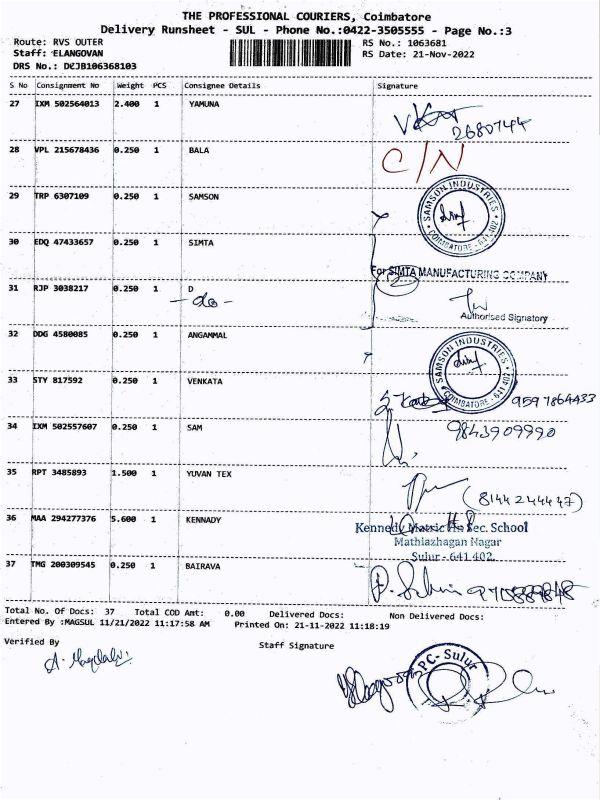 THE PROFESSIONAL COURIERS, Coimbatore
Delivery Runsheet - SUL - Phone No.:0422-3505555 - Page No.:3
Route: RVS OUTER RS No.: 1063681
Staff: ELANGOVAN RS Date: 21-Nov-2022
DRS No.: DCJB106368103
S No Consignment No Weight PCS Consignee Details Signature
27 IXM 502564013 2.400 1 YAMUNA
2680744
28 VPL 215678436 0.250 1 BALA C/N
29 TRP 6307109 0.250 1 SAMSON
SAMSON INDUSTRIES
COIMBATORE - 641 402
30 EDQ 47433657 0.250 1 SIMTA
For SIMTA MANUFACTURING COMPANY
31 RJP 3038217 0.250 1 D
- do -
Authorised Signatory
32 DDG 4580085 0.250 1 ANGAMMAL
SAMSON INDUSTRIES
COIMBATORE - 641 402
33 STY 817592 0.250 1 VENKATA
9597864433
34 IXM 502557607 0.250 1 SAM 9843909990
35 RPT 3485893 1.500 1 YUVAN TEX
(8144244447)
36 MAA 294277376 5.600 1 KENNADY
Kennedy Matric Hr Sec. School
Mathiazhagan Nagar
Sulur - 641 402.
37 TMG 200309545 0.250 1 BAIRAVA
Total No. Of Docs: 37 Total COD Amt: 0.00 Delivered Docs: Non Delivered Docs:
Entered By :MAGSUL 11/21/2022 11:17:58 AM Printed On: 21-11-2022 11:18:19
Verified By Staff Signature
PC- Sulur